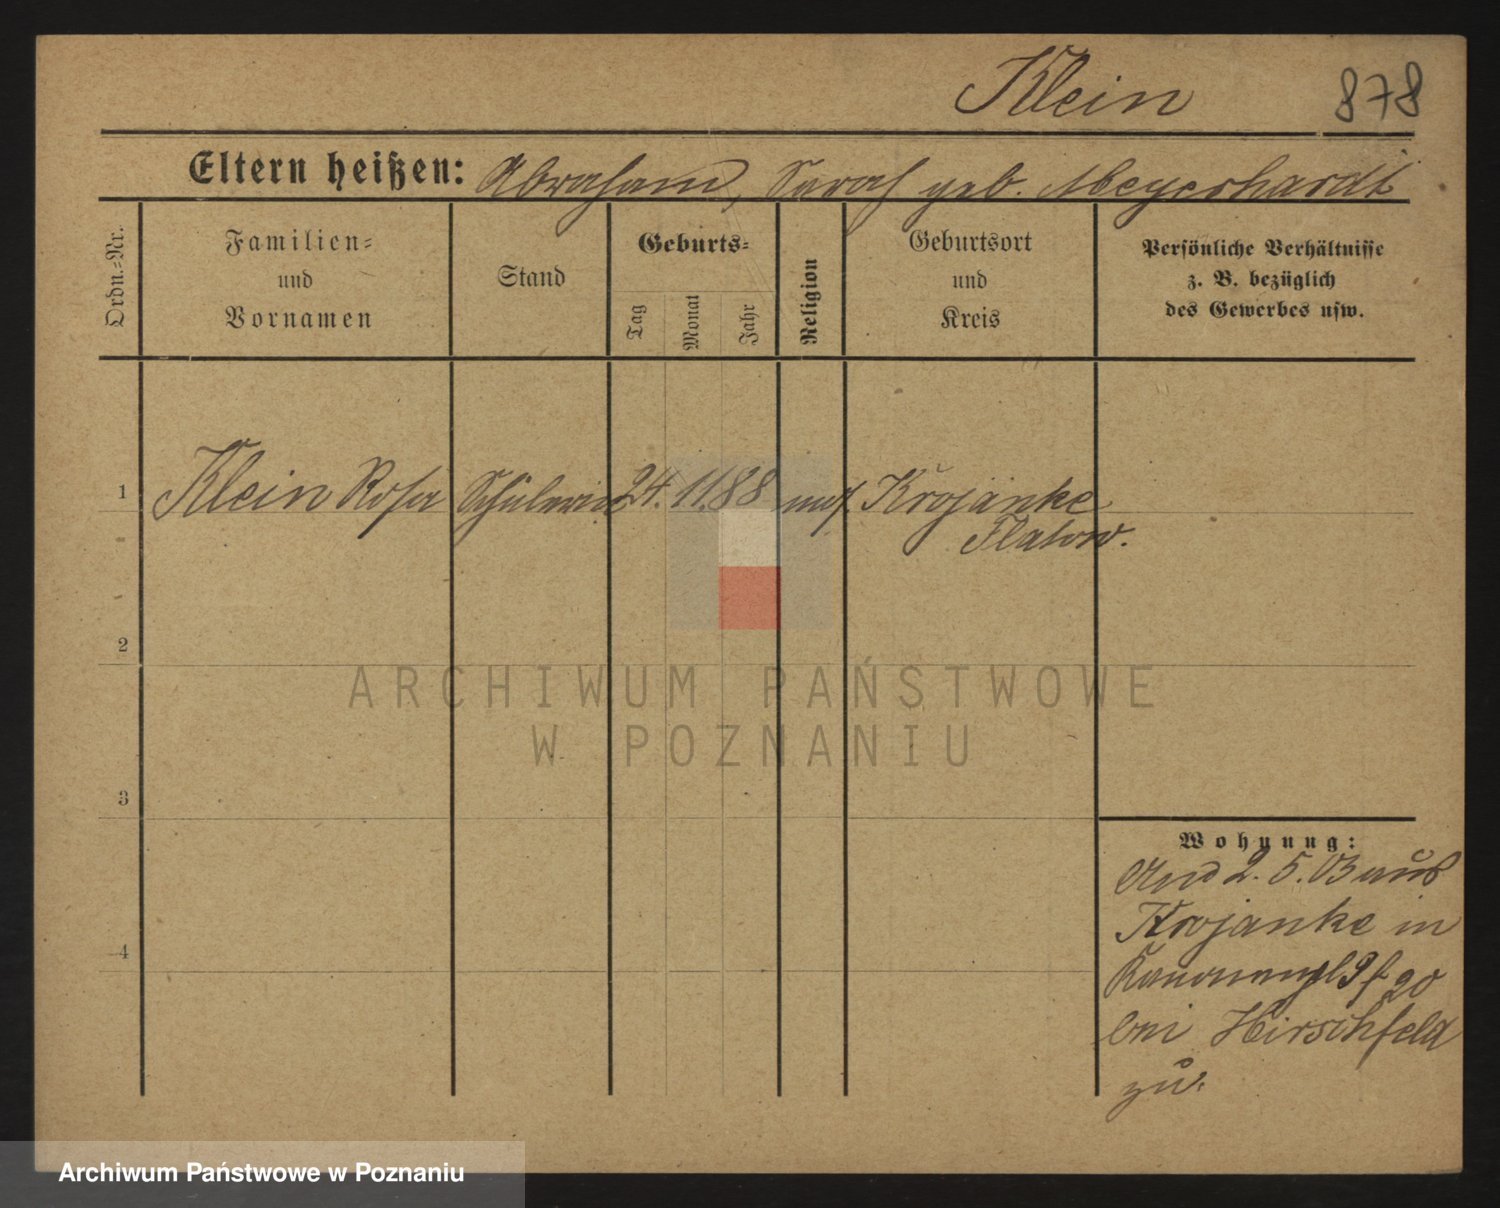 Klein 878
Eltern heißen: Abraham, Sarah geb. Meyerhardt
Ordn.-Nr.
Familien-
und
Vornamen
Stand
Geburts-
Tag
Monat
Jahr
Religion
Geburtsort
und
Kreis
Persönliche Verhältnisse
z. B. bezüglich
des Gewerbes usw.
1 Klein Rosa Schülerin 24. 11. 88 mos. Krojanke
Flatow.
2
3
4
Wohnung:
2. 5. 03 aus
Krojanke in
20
bei Hirschfeld
zu.
ARCHIWUM PAŃSTWOWE
W POZNANIU
Archiwum Państwowe w Poznaniu